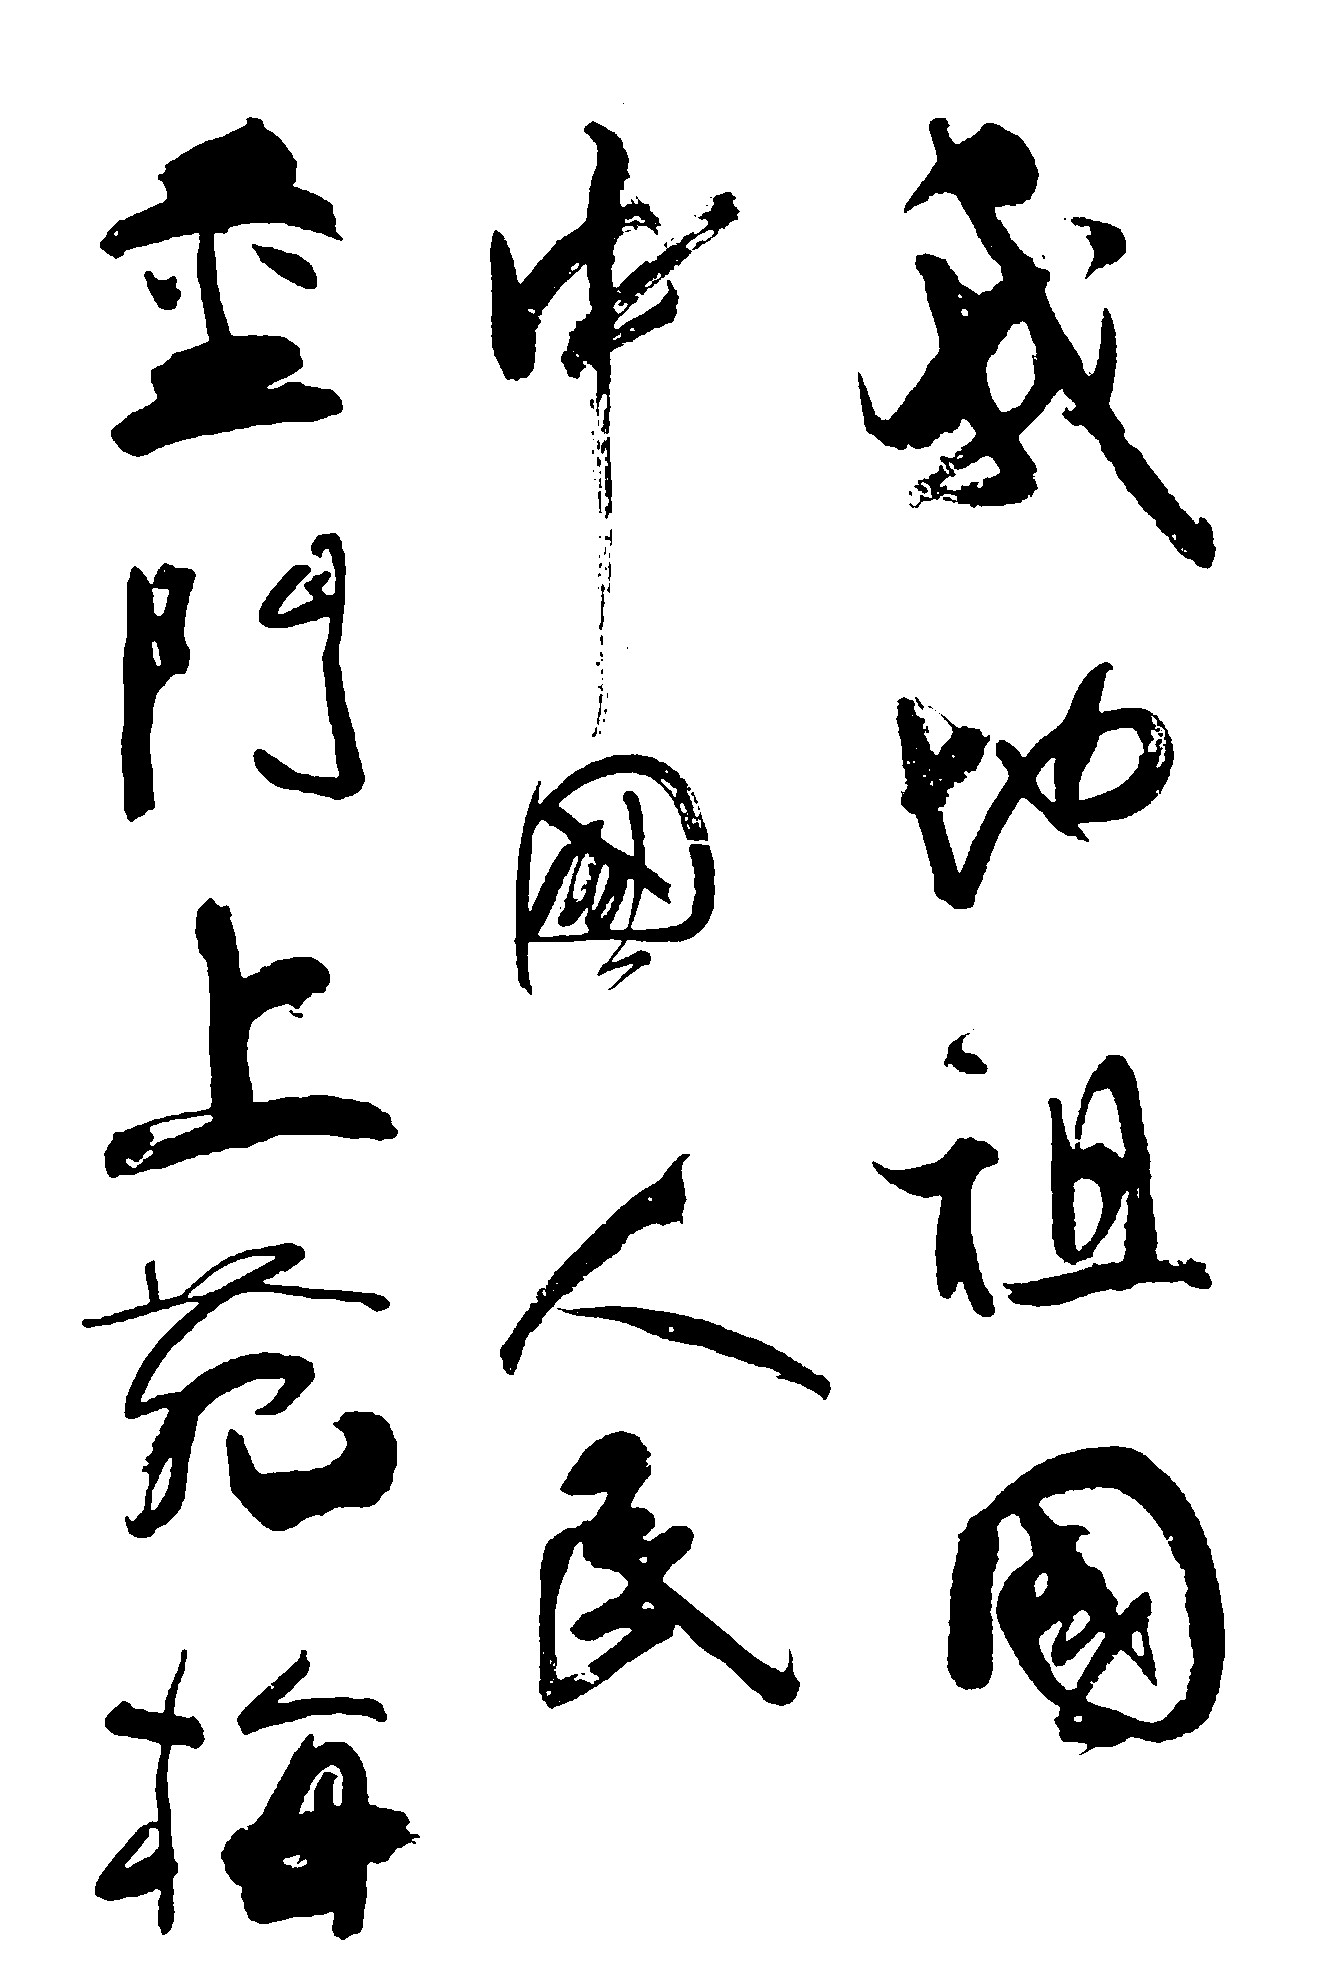 盛地祖國
中國人民
金門上苑梅